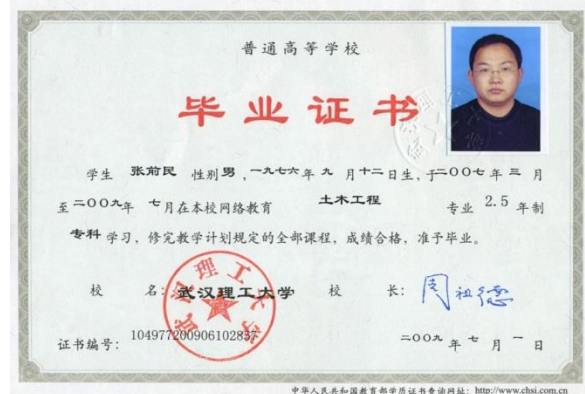 普通高等学校
毕业证书
学生 张前民 性别 男 ,一九七六年 九 月十二日生, 于二00七年 三 月
至二00九年 七月在本校网络教育 土木工程 专业 2.5 年制
专科 学习, 修完教学计划规定的全部课程, 成绩合格, 准予毕业。
校 名: 武汉理工大学 校 长: 周祖德
武汉理工大学
证书编号: 104977200906102837 二00九 年 七 月 一 日
中华人民共和国教育部学历证书查询网址: http://www.chsi.com.cn